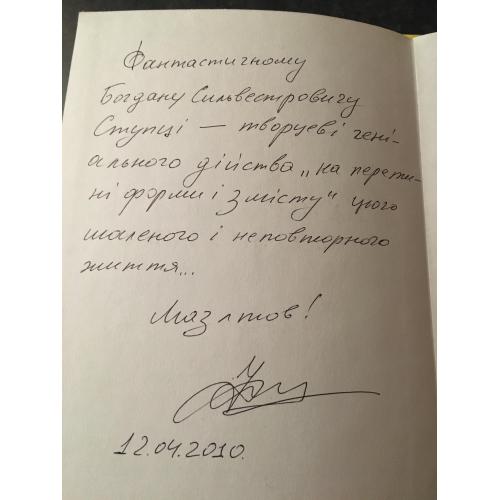 Фантастичному
Богдану Сильвестровичу
Ступці — творцеві гені-
ального дійства „на перети-
ні форми і змісту" цього
шаленого і неповторного
життя...
Мазлтов!
12.04.2010.